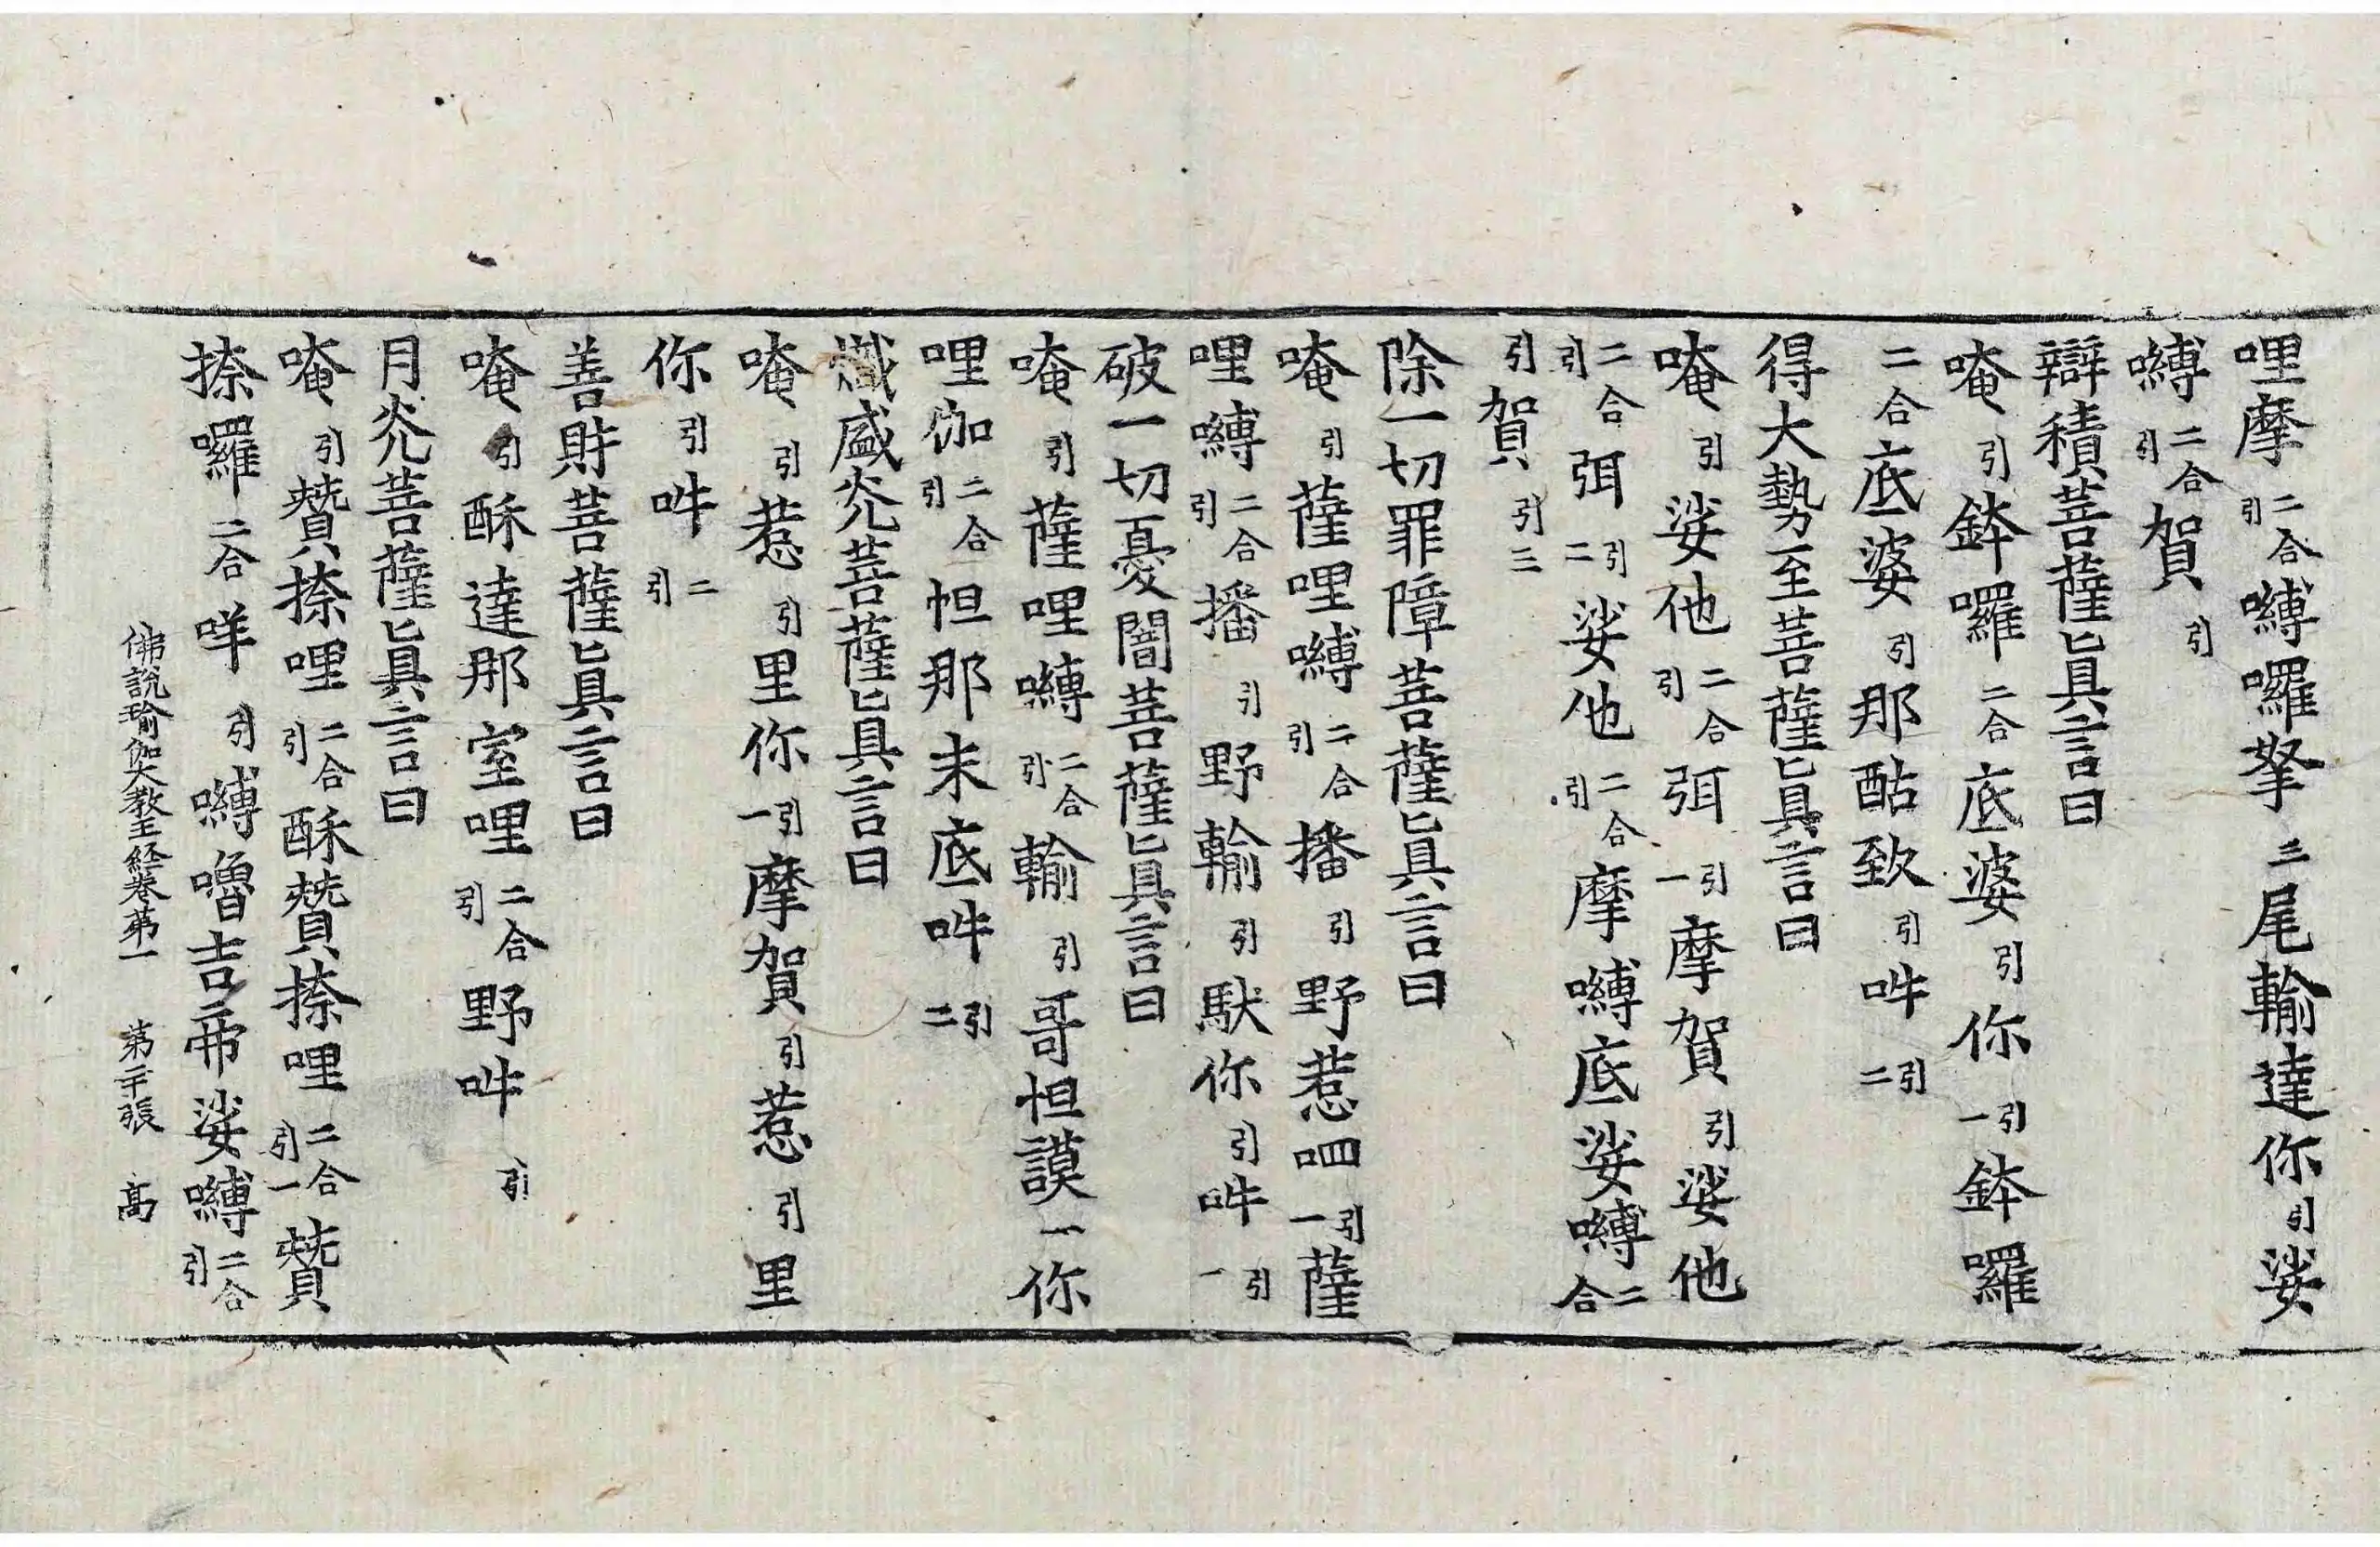 哩摩二合引嚩囉拏三尾輸達你引娑
嚩二合引賀引
辯積菩薩眞言曰
唵引鉢囉二合底婆引你引一鉢囉
二合底婆引那酤致引吽引二
得大勢至菩薩眞言曰
唵引娑他二合引弭引一摩賀引娑他
二合引弭引二娑他二合引摩嚩底娑嚩二合
引賀引三
除一切罪障菩薩眞言曰
唵引薩哩嚩二合引播引野惹呬引一薩
哩嚩二合引播引野輸引馱你引吽引一
破一切憂闇菩薩眞言曰
唵引薩哩嚩二合引輸引哥怛謨一你
哩伽二合引怛那末底吽引二
熾盛光菩薩眞言曰
唵引惹引里你引一摩賀引惹引里
你引吽二引
善財菩薩眞言曰
唵引酥達那室哩二合引野吽引
月光菩薩眞言曰
唵引贊捺哩二合引酥贊捺哩二合引一贊
捺囉二合咩引嚩嚕吉帝娑嚩二合引
佛說瑜伽大教王經卷第一 第二十張 高